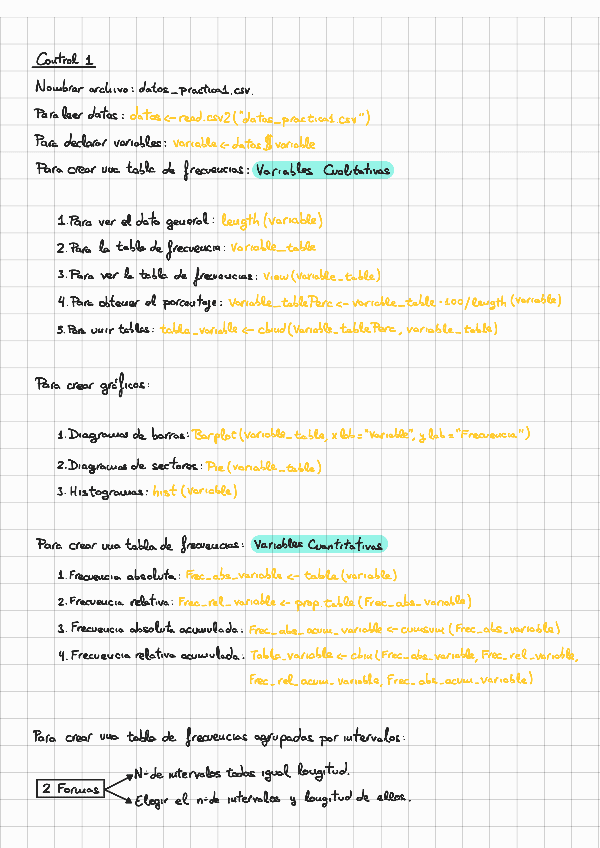 Control 1
Nombrar archivo: datos_practica1.csv.
Para leer datos: datos <- read.csv2("datos_practica1.csv")
Para declarar variables: variable <- datos$variable
Para crear una tabla de frecuencias: Variables Cualitativas
1. Para ver el dato general: length (variable)
2. Para la tabla de frecuencia: Variable_table
3. Para ver la tabla de frecuencias: View (Variable_table)
4. Para obtener el porcentaje: Variable_tablePerc <- variable_table · 100/length (variable)
5. Para unir tablas: tabla_variable <- cbind (Variable_tablePerc, variable_table)
Para crear gráficos:
1. Diagramas de barras: Barplot (variable_table, xlab = "Variable", ylab = "Frecuencia")
2. Diagramas de sectores: Pie (variable_table)
3. Histogramas: hist (variable)
Para crear una tabla de frecuencias: Variables Cuantitativas
1. Frecuencia absoluta: Frec_abs_variable <- table (variable)
2. Frecuencia relativa: Frec_rel_variable <- prop table (Frec_abs_variable)
3. Frecuencia absoluta acumulada: Frec_abs_acum_variable <- cumsum (Frec_abs_variable)
4. Frecuencia relativa acumulada: Tabla_variable <- cbin (Frec_abs_variable, Frec_rel_variable,
Frec_rel_acum_variable, Frec_abs_acum_variable)
Para crear una tabla de frecuencias agrupadas por intervalos:
2 Formas
Nº de intervalos todos igual longitud.
Elegir el nº de intervalos y longitud de ellos.